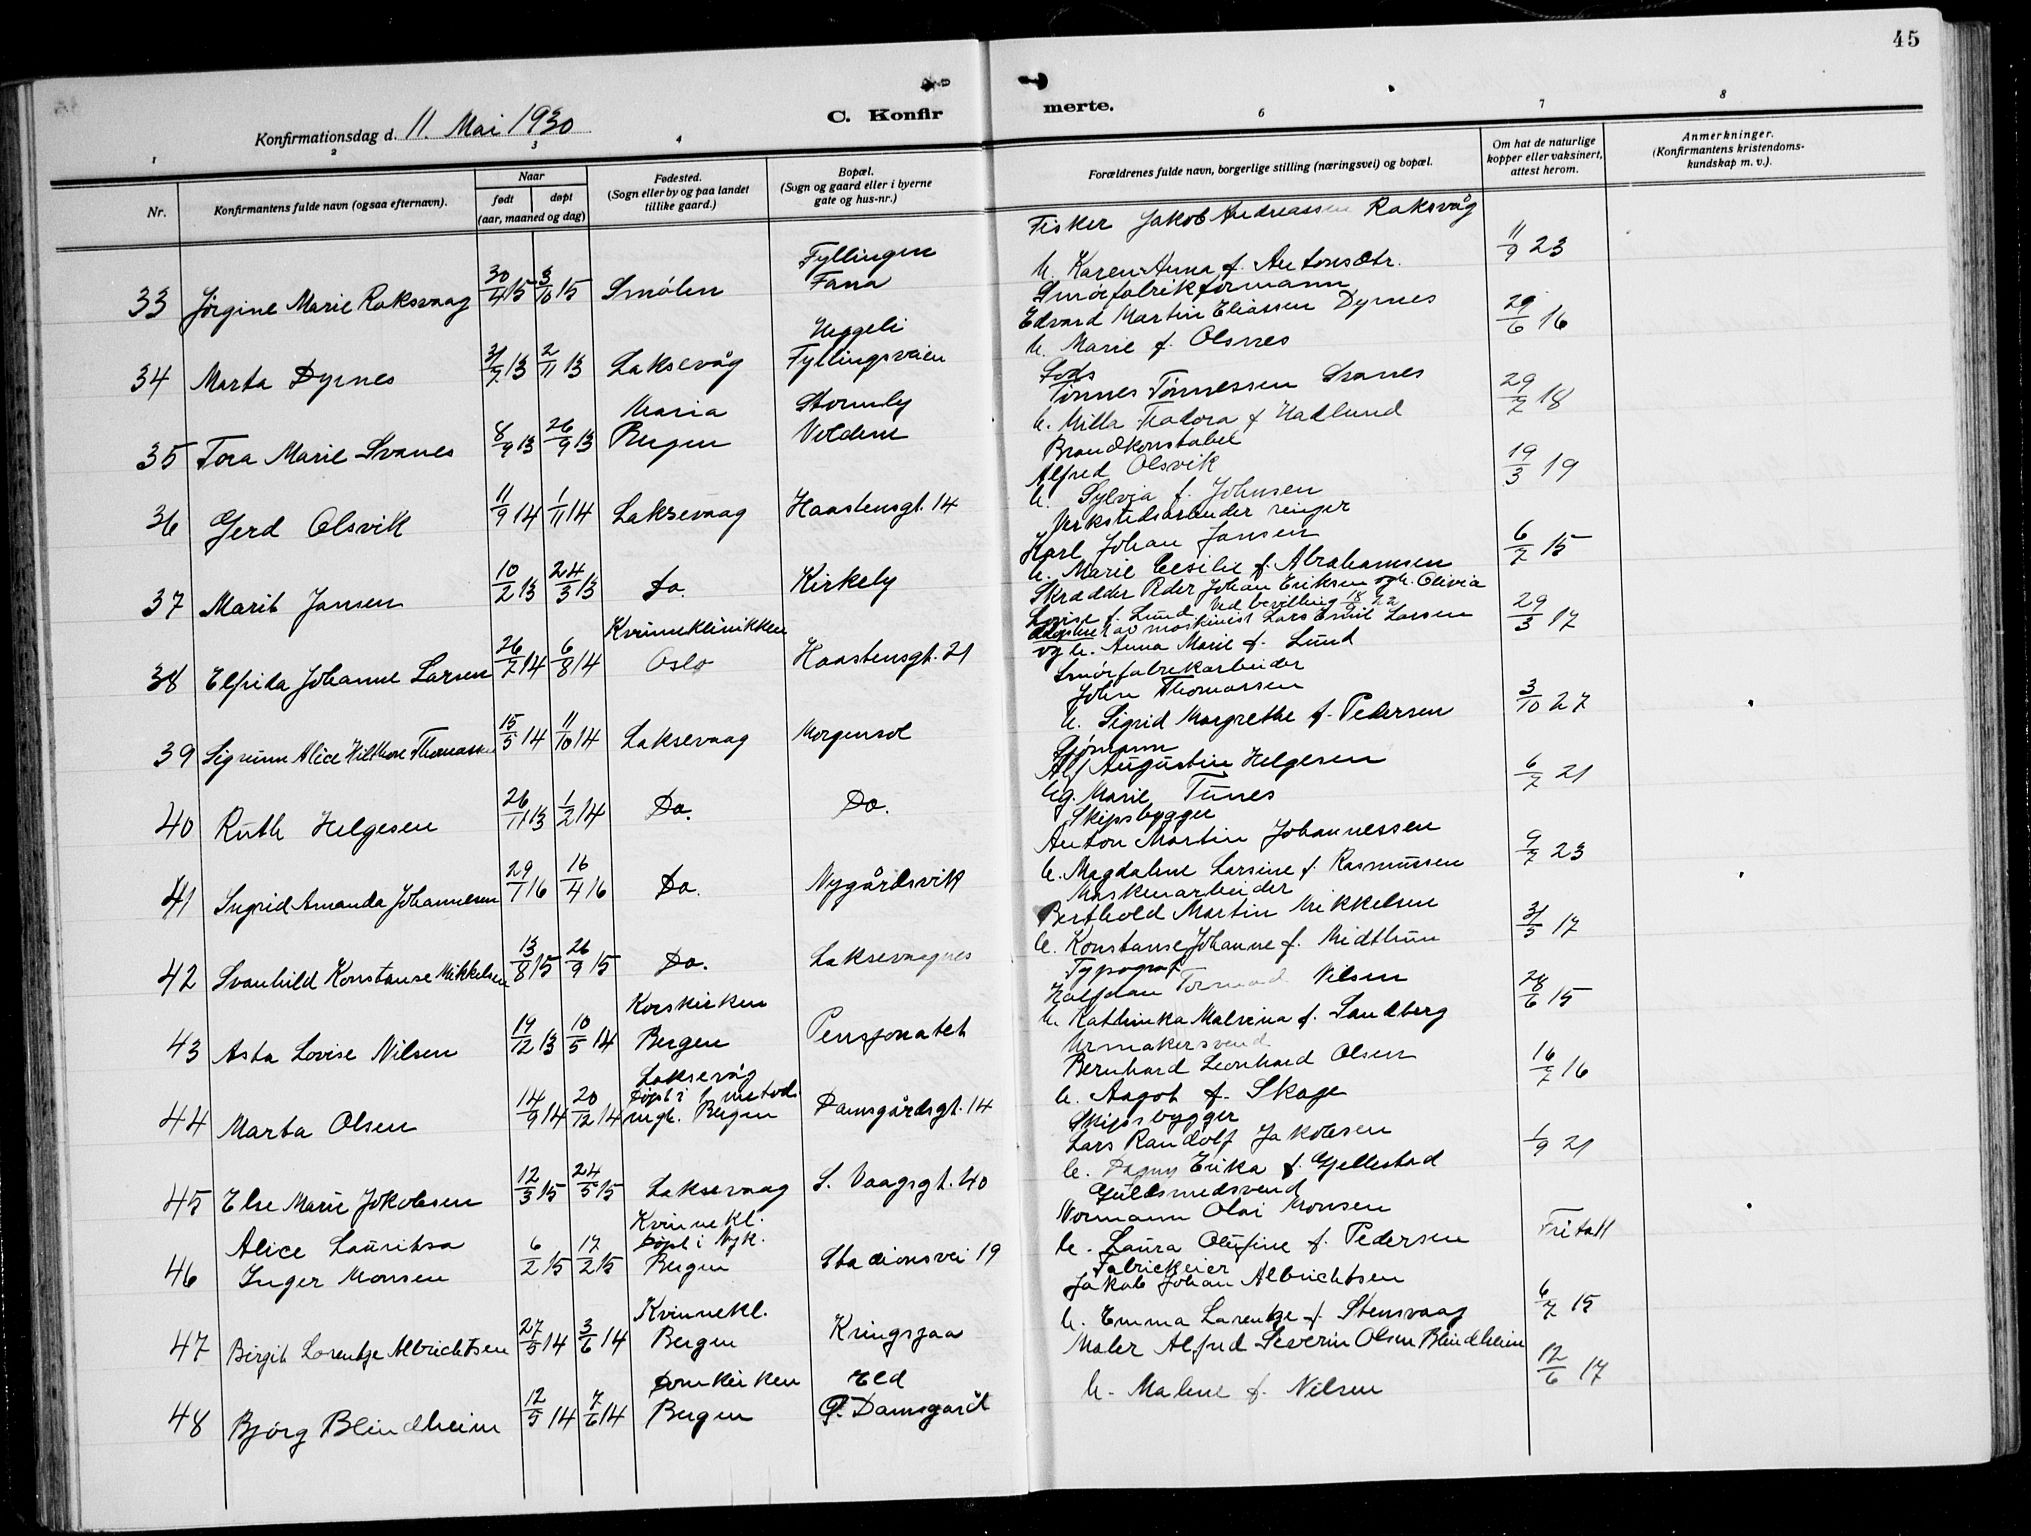 45
Konfirmationsdag d. 11. Mai 1930
C. Konfir
merte.
1 2 3 4 6 7 8
Nr.
Konfirmantens fulde navn (ogsaa efternavn).
Naar
født døpt
(aar, maaned og dag)
Fødested.
(Sogn eller by og paa landet
tillike gaard.)
Bopæl.
(Sogn og gaard eller i byerne
gate og hus-nr.)
Forældrenes fulde navn, borgerlige stilling (næringsvei) og bopæl.
Om hat de naturlige
kopper eller vaksinert,
attest herom.
Anmerkninger.
(Konfirmantens kristendoms-
kundskap m. v.).
Fyllingen
33 Jørgine Marie Roksvaag 30/4 15 3/10 15 Smølen Fana
Fisker Jakob Andreassen Roksvåg
h. Karen Anna f. Antonsdtr.
11/9 23
Heggeli
34 Marta Dyrnes 31/7 13 2/11 13 Laksevåg Fyllingsveien
Smørfabrikformann
Edvard Martin Eliassen Dyrnes
h. Marie f. Olsnes
29/6 16
Maria Stormly
35 Tora Marie Svanes 8/9 13 26/9 13 Bergen Voldene
Tønnes Tønnessen Svanes
h. Milla Teodora f. Hadlund
29/7 18
36 Gerd Olsvik 11/9 14 1/11 14 Laksevaag Haastensgt. 14
Brandkonstabel
Alfred Olsvik
h. Sylvia f. Johnsen
19/3 19
37 Marit Jansen 10/2 13 24/3 13 Do. Kirkely
Verkstedsarbeider
Karl Johan Jansen
h. Marie Cesilie f. Abrahamsen
6/7 15
Kvinneklinikken
38 Elfrida Johanne Larsen 26/2 14 6/8 14 Oslo Haastensgt. 21
Skrædder Peder Johan Eriksen og h. Olivia
Lovise f. Lund. Ved bevilling 18/9 22
adoptert av maskinist Lars Emil Larsen
og h. Anna Marie f. Lund
29/3 17
39 Sigrunn Alice Thomassen 15/5 14 11/10 14 Laksevaag Morgensol
Smørfabrikarbeider
John Thomassen
h. Sigrid Margrethe f. Pedersen
3/10 27
40 Ruth Helgesen 26/11 13 1/2 14 Do. Do.
Sjømann
Alf Augustin Helgesen
Ug. Marie Tunes
6/7 21
41 Ingrid Amanda Johannesen 29/1 16 16/4 16 Do. Nygårdsvik
Skipsbygger
Anton Martin Johannessen
h. Magdalene Larsine f. Rasmussen
9/7 23
42 Svanhild Konstanse Mikkelsen 13/8 15 26/9 15 Do. Laksevaagnes
Maskinarbeider
Berthold Martin Mikkelsen
h. Konstanse Johanne f. Midthun
31/5 17
Korskirken
43 Asta Lovise Nilsen 19/12 13 10/5 14 Bergen Pensjonatet
Typograf
Halfdan Tormod Nilsen
h. Kathinka Malvina f. Sandberg
28/6 15
Laksevåg
døpt i 1 metod.
44 Marta Olsen 14/9 14 20/12 14 mgh. Bergen Damsgårdsgt. 14
Urmakersvend
Bernhard Leonhard Olsen
h. Aagot f. Skage
16/7 16
45 Else Marie Jakobsen 12/3 15 24/5 15 Laksevaag S. Vaagsgt. 40
Skipsbygger
Lars Randolf Jakobsen
h. Dagny Erika f. Gjellestad
1/9 21
Kvinnekl.
Alice Lauritsa døpt i Nyk.
46 Inger Monsen 6/2 15 17/2 15 Bergen Stadionsvei 19
Guldsmedsvend
Normann Olai Monsen
h. Laura Olufine f. Pedersen
Fritatt
Kvinnekl.
47 Birgit Lorentze Albrichtsen 27/5 14 3/6 14 Bergen Kringsjaa
Fabrickeier
Jakob Johan Albrichtsen
h. Emma Larentze f. Stensvaag
6/7 15
Domkirken
48 Bjørg Blindheim 12/5 14 7/6 14 Bergen Damsgård
Maler Alfred Severin Olsen Blindheim
h. Malene f. Nilsen
12/6 17